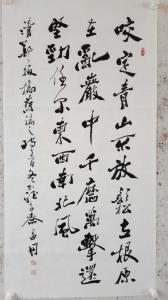 咬定青山不放鬆立根原
在亂巖中千磨萬擊還
堅勁任尔東西南北風
清鄭板橋